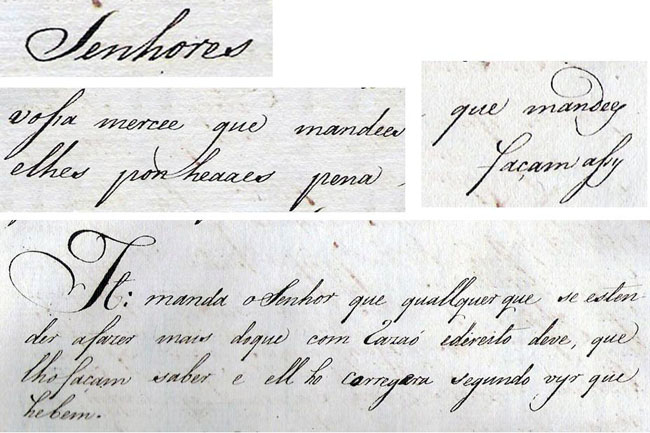 Senhores
vossa mercee que mandees
elhes pònheaaes pena
que mandey
façam assy
It: manda o Senhor que quallquer que se esten
der afazer mais doque com Razaó edireito deve, que
lho façam saber e ell ho corregera segundo vyr que
hebem.